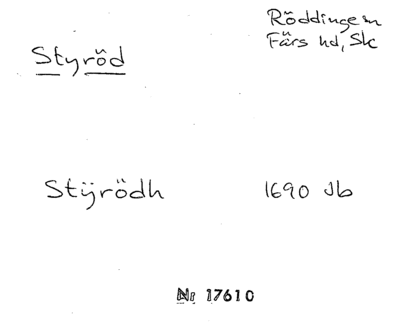 Röddinge sn
Färs hd, Sk
Styröd
Stÿrödh 1690 Jb
Nr 17610